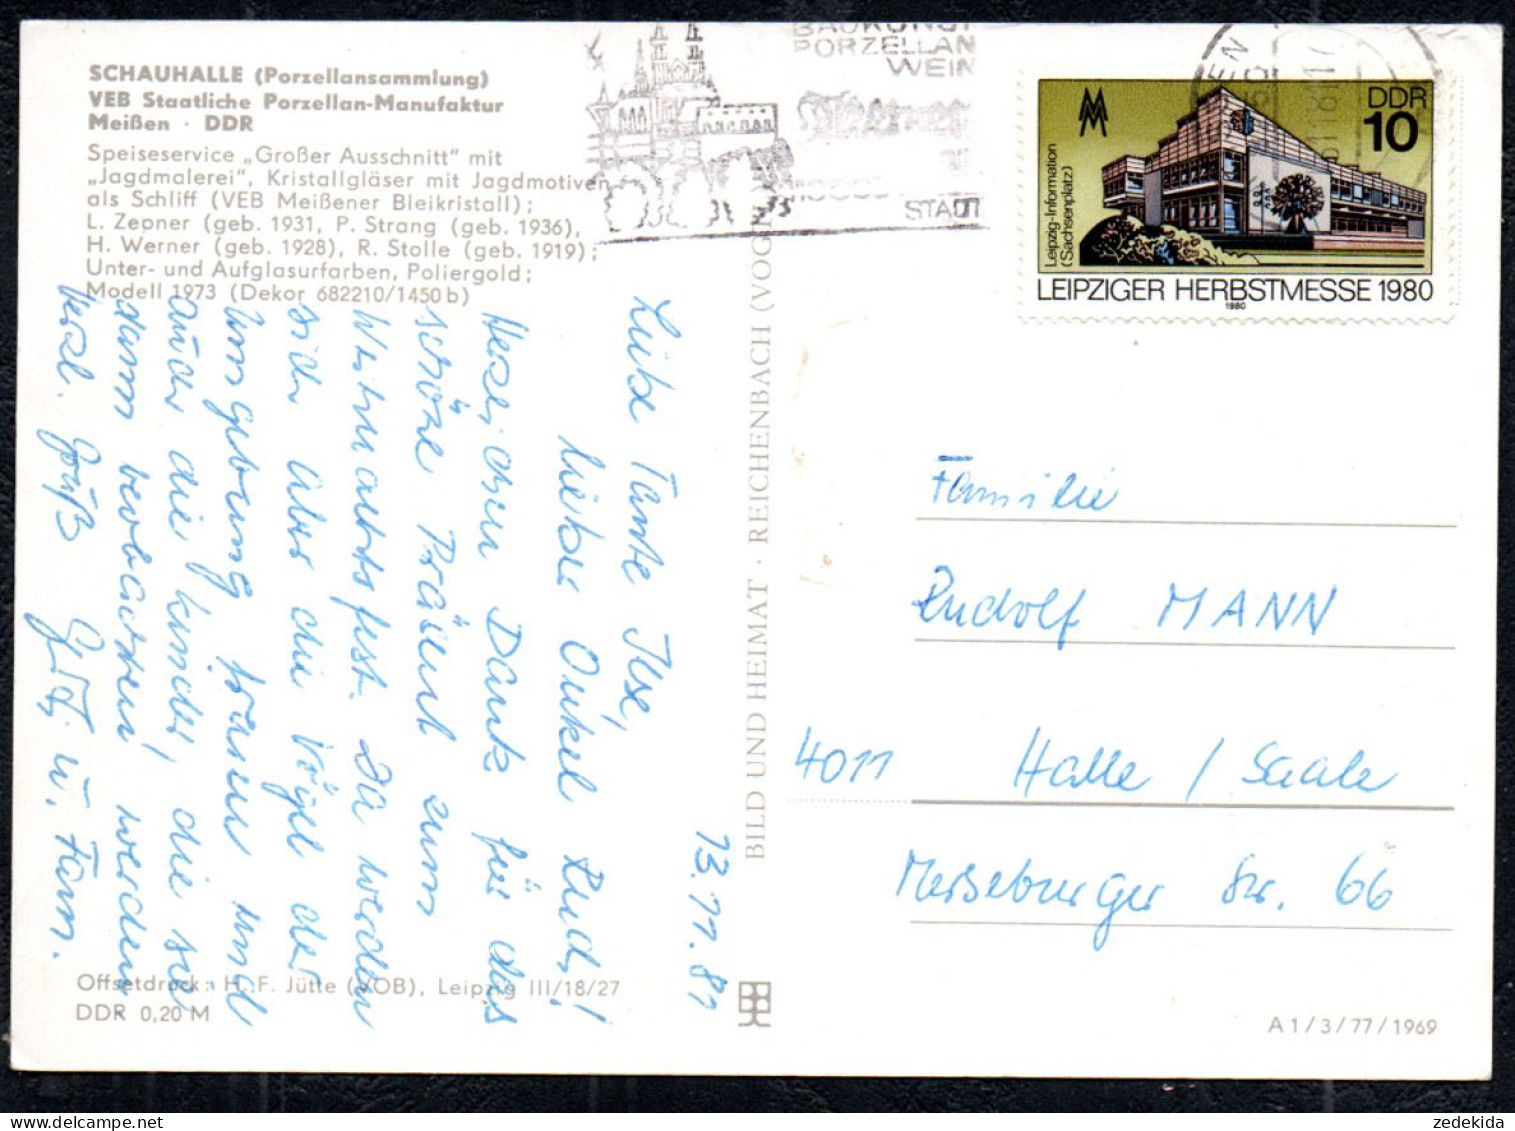 SCHAUHALLE (Porzellansammlung)
VEB Staatliche Porzellan-Manufaktur
Meißen · DDR
Speiseservice „Großer Ausschnitt" mit
„Jagdmalerei", Kristallgläser mit Jagdmotiven
als Schliff (VEB Meißener Bleikristall);
L. Zepner (geb. 1931, P. Strang (geb. 1936),
H. Werner (geb. 1928), R. Stolle (geb. 1919);
Unter- und Aufglasurfarben, Poliergold;
Modell 1973 (Dekor 682210/1450 b)
13.11.81
Liebe Tante Ilse,
lieber Onkel Rud,!
Herzlichen Dank für das
schöne Präsent zum
Weihnachtsfest. Da werden
sich aber die Vögel der
Umgebung freuen und
auch die Kinder, die sie
dann beobachten werden
Herzl. Grüß
u. Fam.
Offsetdruck: H. F. Jütte (VOB), Leipzig III/18/27
DDR 0,20 M
BILD UND HEIMAT · REICHENBACH (VOG
BAUKUNST
PORZELLAN
WEIN
STADT
DDR
10
Leipzig-Information
(Sachsenplatz)
LEIPZIGER HERBSTMESSE 1980
1980
Familie
Rudolf MANN
4011 Halle / Saale
Merseburger Str. 66
A 1/3/77/1969
zedekida